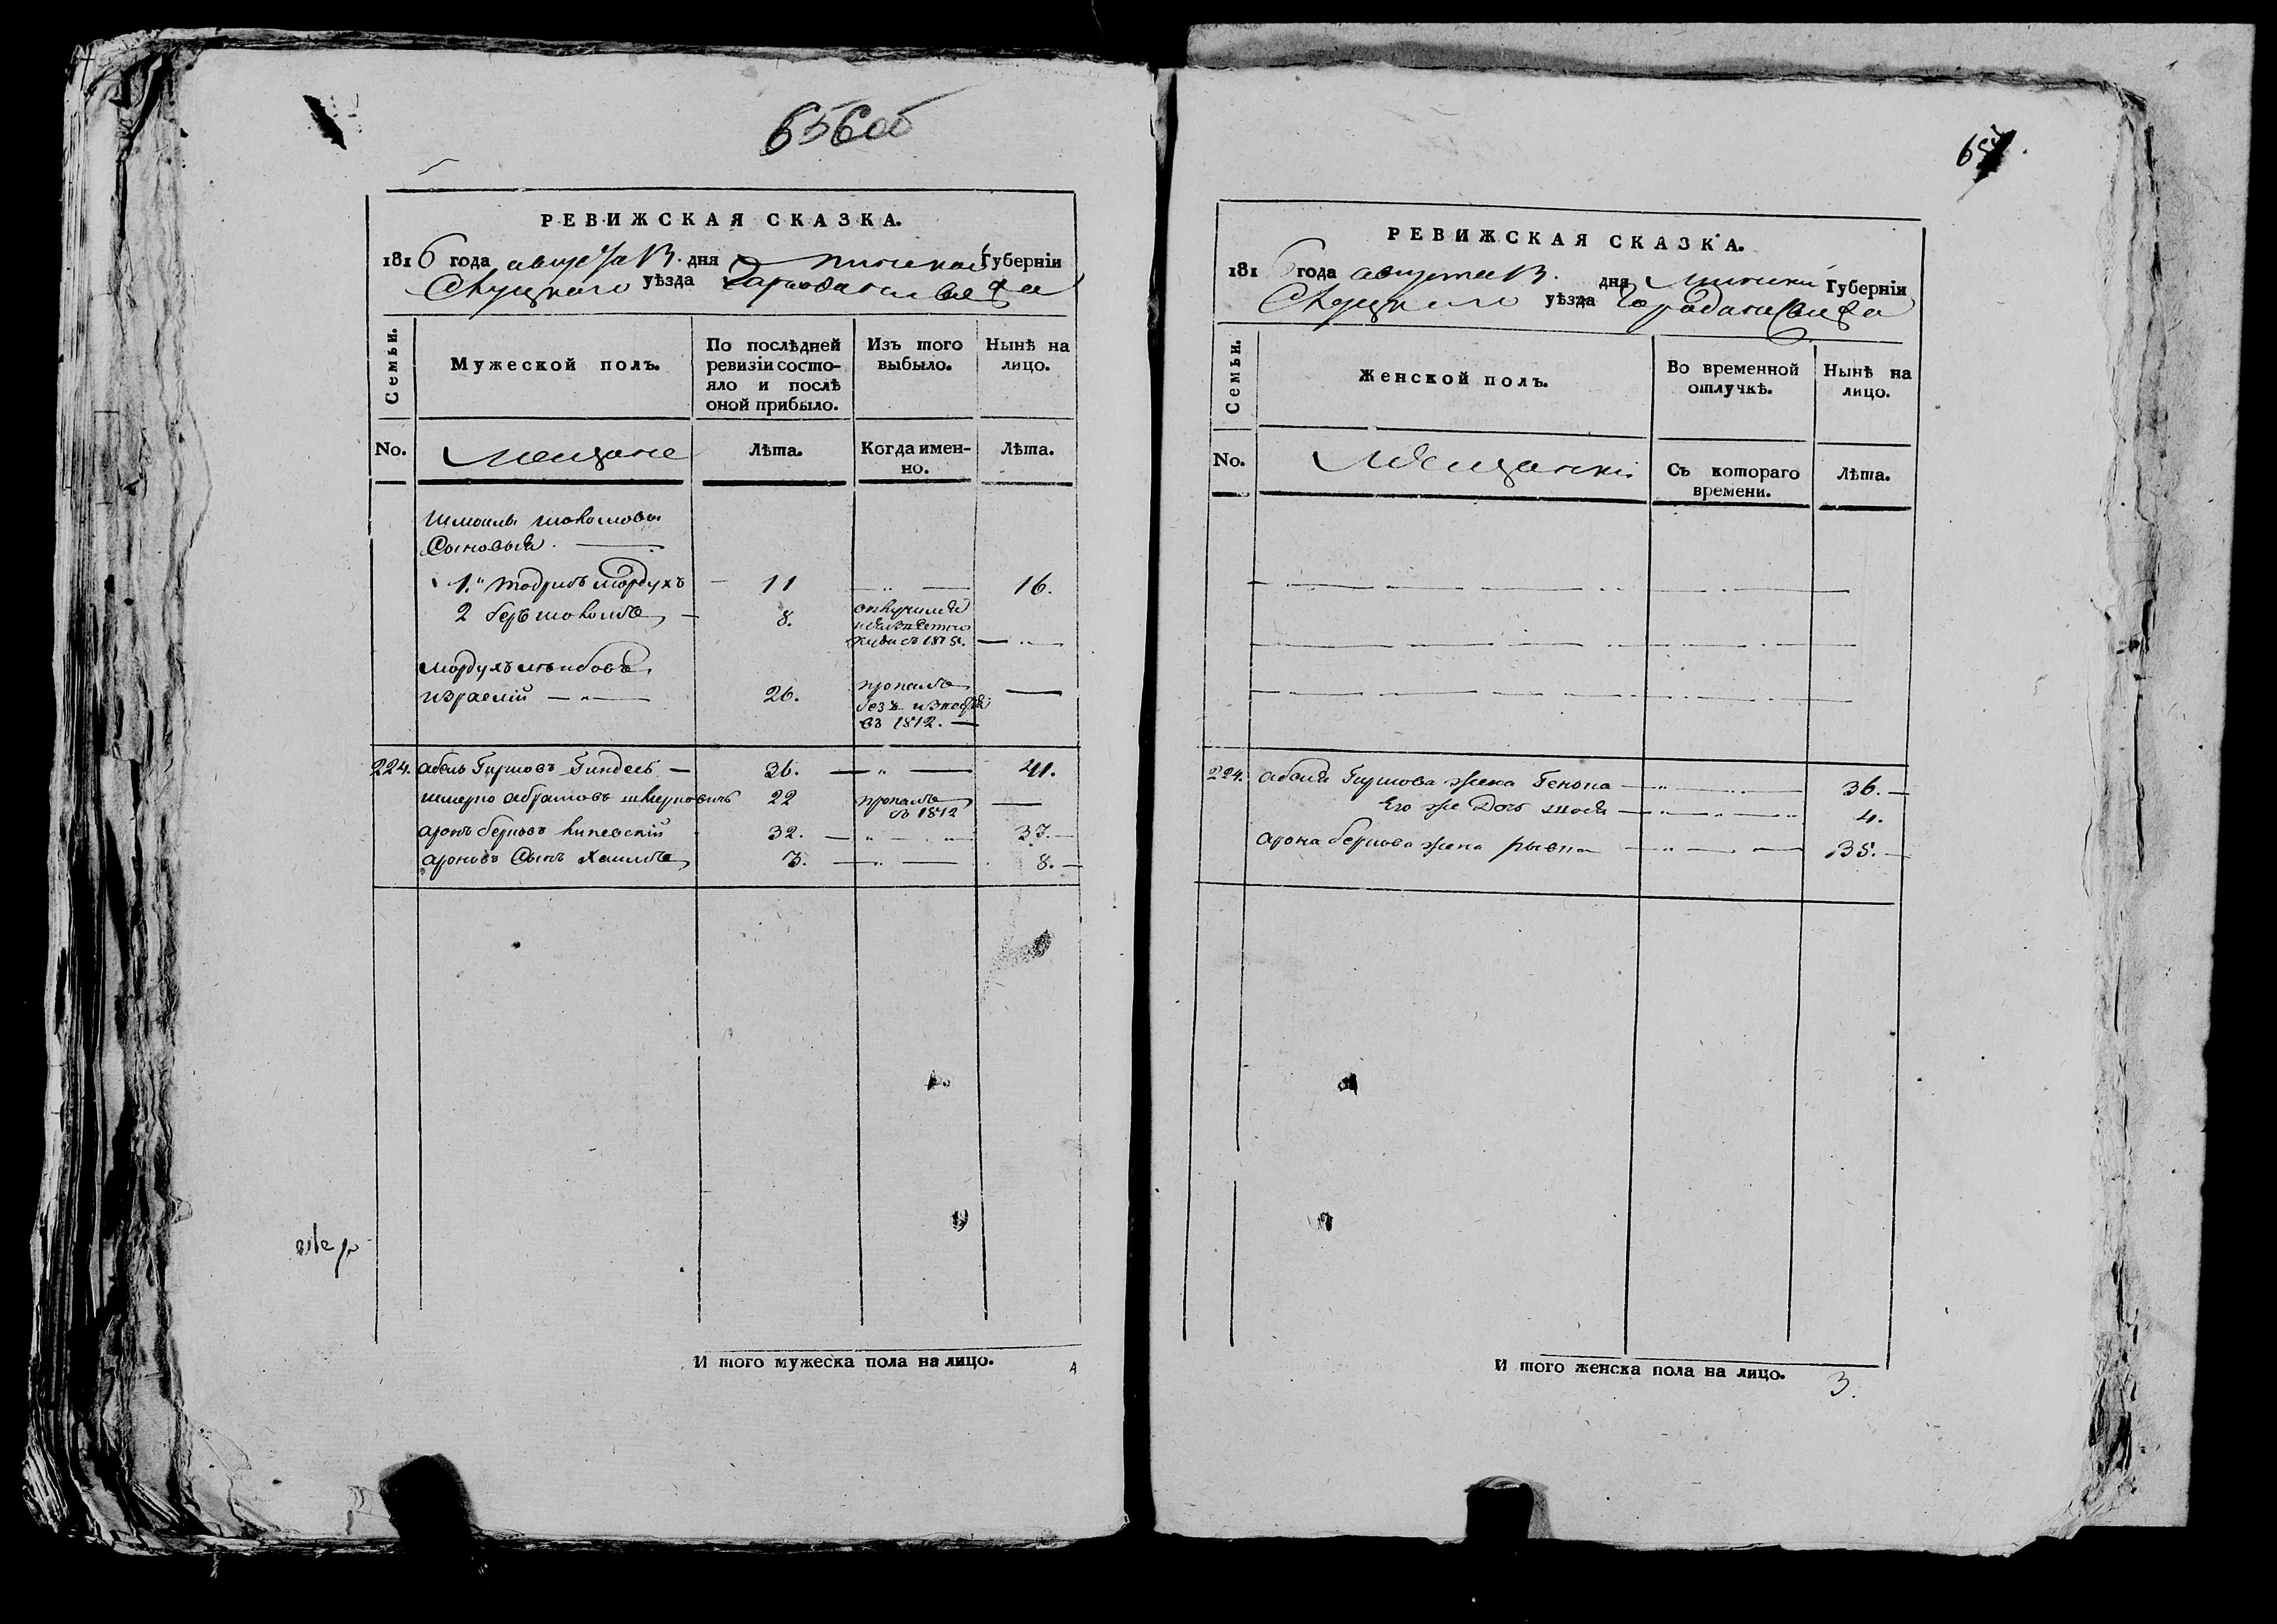 656об
РЕВИЖСКАЯ СКАЗКА.
1816 года августа 13. дня минской Губерніи
Слуцкаго уѣзда
Семьи.
Мужеской полъ.
По послѣдней
ревизіи состо-
яло и послѣ
оной прибыло.
Изъ того
выбыло.
Нынѣ на
лицо.
No.
Мещане
Лѣта.
Когда имен-
но.
Лѣта.
Сыновья
1. мордухъ 11 16.
2 беръ 8. отлучился
съ 1815.
мордухъ
израелій 26. пропалъ
безъ
въ 1812.
224. абель Гиршовъ Гиндель 36. 41.
шмерко абрамовъ 22 пропалъ
въ 1812
аронъ берковъ 32. 37.
ароновъ сынъ хаимъ 3. 8.
И того мужеска пола на лицо. 4
657.
РЕВИЖСКАЯ СКАЗКА.
1816 года августа 13. дня Минской Губерніи
Слуцкаго уѣзда
Семьи.
Женской полъ.
Во временной
отлучкѣ.
Нынѣ на
лицо.
No.
Мещанки
Съ котораго
времени.
Лѣта.
224. абеля Гиршова жена Генька 36.
Его же Дочь 4.
арона беркова жена рывка 35.
И того женска пола на лицо. 3.